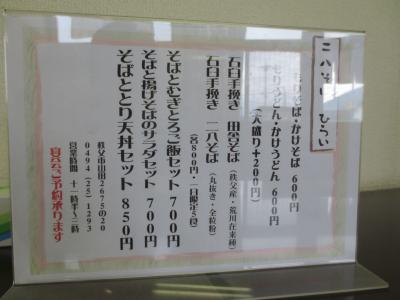 二八そば ひらい
もりそば・かけそば 600円
もりうどん・かけうどん 600円
(大盛り+200円)
石臼手挽き 田舎そば (秩父産・荒川在来種)
石臼手挽き 二八そば (丸抜き・全粒粉)
(各800円・一日限定5食)
そばとむぎとろご飯セット 700円
そばと揚げそばのサラダセット 700円
そばととり天丼セット 850円
秩父市山田2675の20
0494(25)1293
営業時間 十一時半~二時
宴会ご予約承ります